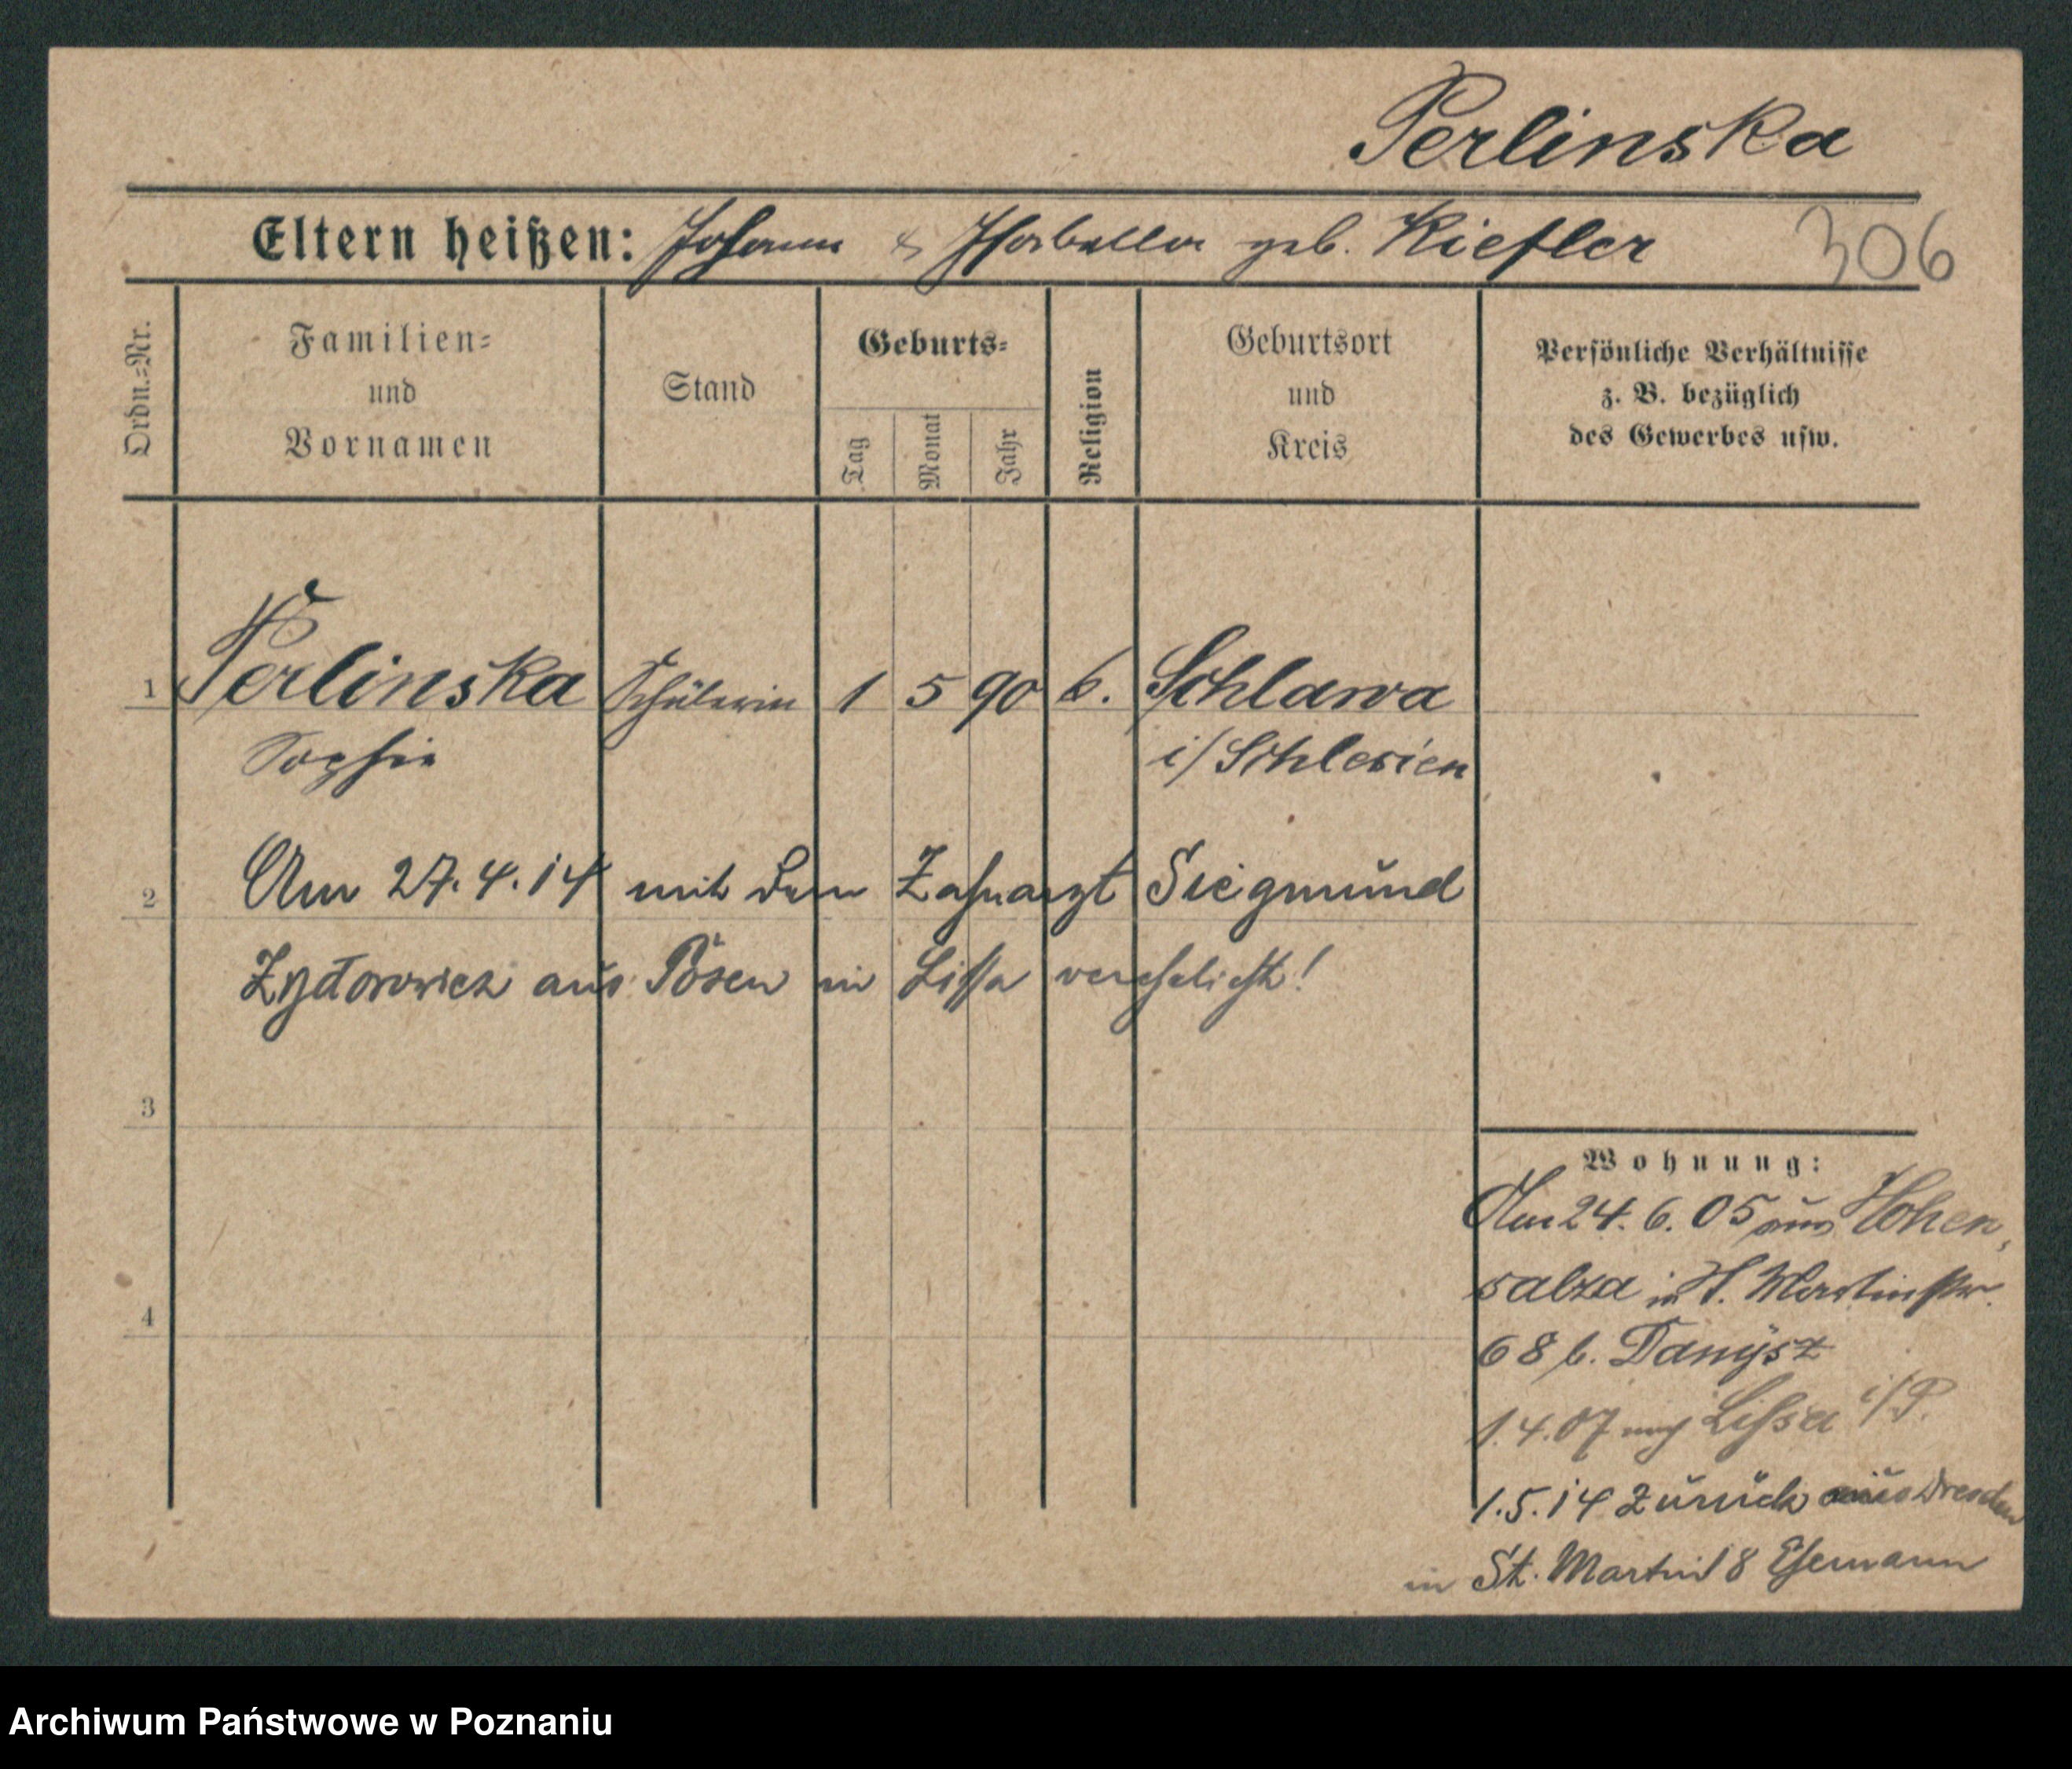 Perlinska
Eltern heißen: Johann & Isabella geb. Kiefler
306
Ordn.=Nr.
Familien=
und
Vornamen
Stand
Geburts=
Tag
Monat
Jahr
Religion
Geburtsort
und
Kreis
Persönliche Verhältnisse
z. B. bezüglich
des Gewerbes usw.
1 Perlinska Schülerin 1 5 90 k. Schlawa
Sophie i/Schlesien
2 Am 27.4.14 mit dem Zahnarzt Siegmund
Zydorowicz aus Posen in Lissa verehelicht!
3
4
Wohnung:
Am 24.6.05 aus Hohen,
salza in St. Martinstr.
68 b. Danysz
1.4.07 nach Lissa i/P.
1.5.14 zurück aus Dresden
in St. Martin 18 Ehemann
Archiwum Państwowe w Poznaniu